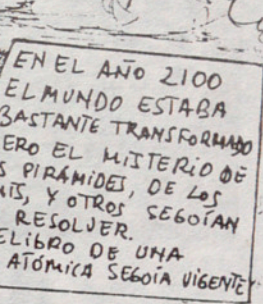 EN EL AÑO 2100
EL MUNDO ESTABA
BASTANTE TRANSFORMADO
ERO EL MISTERIO DE
S PIRÁMIDES, DE LOS
NIS, Y OTROS SEGOÍAN
RESOLVER.
ELIBRO DE UNA
ATÓMICA SEGOÍA VIGENTE